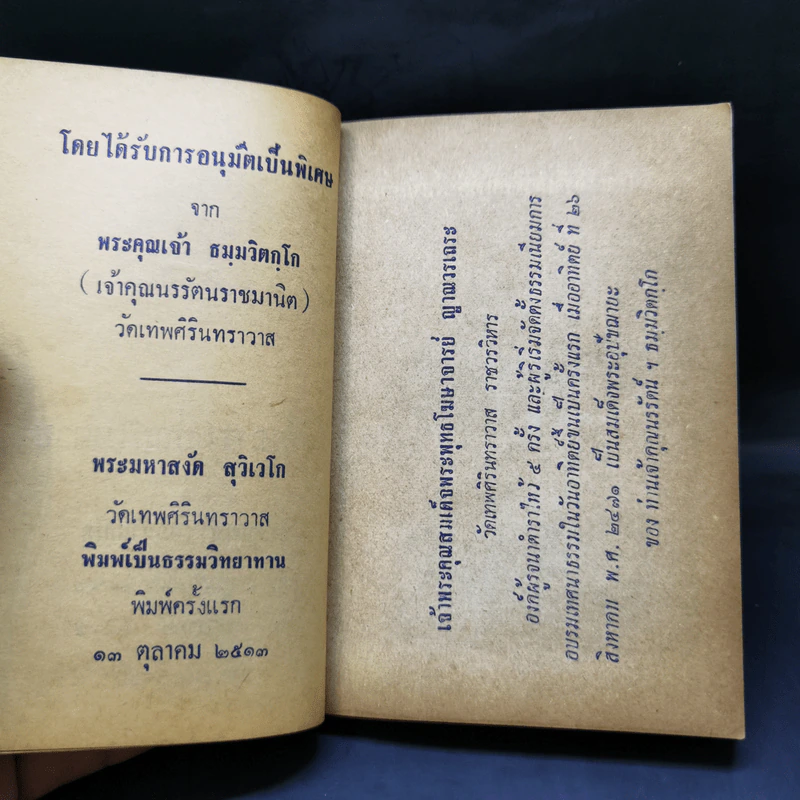 โดยได้รับการอนุมัติเป็นพิเศษ
จาก
พระคุณเจ้า ธมฺมวิตกฺโก
(เจ้าคุณนรรัตนราชมานิต)
วัดเทพศิรินทราวาส
พระมหาสงัด สุวิเวโก
วัดเทพศิรินทราวาส
พิมพ์เป็นธรรมวิทยาทาน
พิมพ์ครั้งแรก
๑๓ ตุลาคม ๒๕๑๓
เจ้าพระคุณสมเด็จพระพุทธโฆษาจารย์ ญาณวรเถระ
วัดเทพศิรินทราวาส ราชวรวิหาร
องค์ผู้รจนาตำราไหว้ ๕ ครั้ง และผู้ริเริ่มจัดตั้งธรรมเนียมการ
อบรมเทศนาธรรมในวันอาทิตย์ขึ้นเป็นครั้งแรก เมื่ออาทิตย์ ที่ ๒๖
สิงหาคม พ.ศ. ๒๔๗๑ เป็นสมเด็จพระอุปัชฌายะ
ของ ท่านเจ้าคุณนรรัตน์ ฯ ธมฺมวิตกฺโก